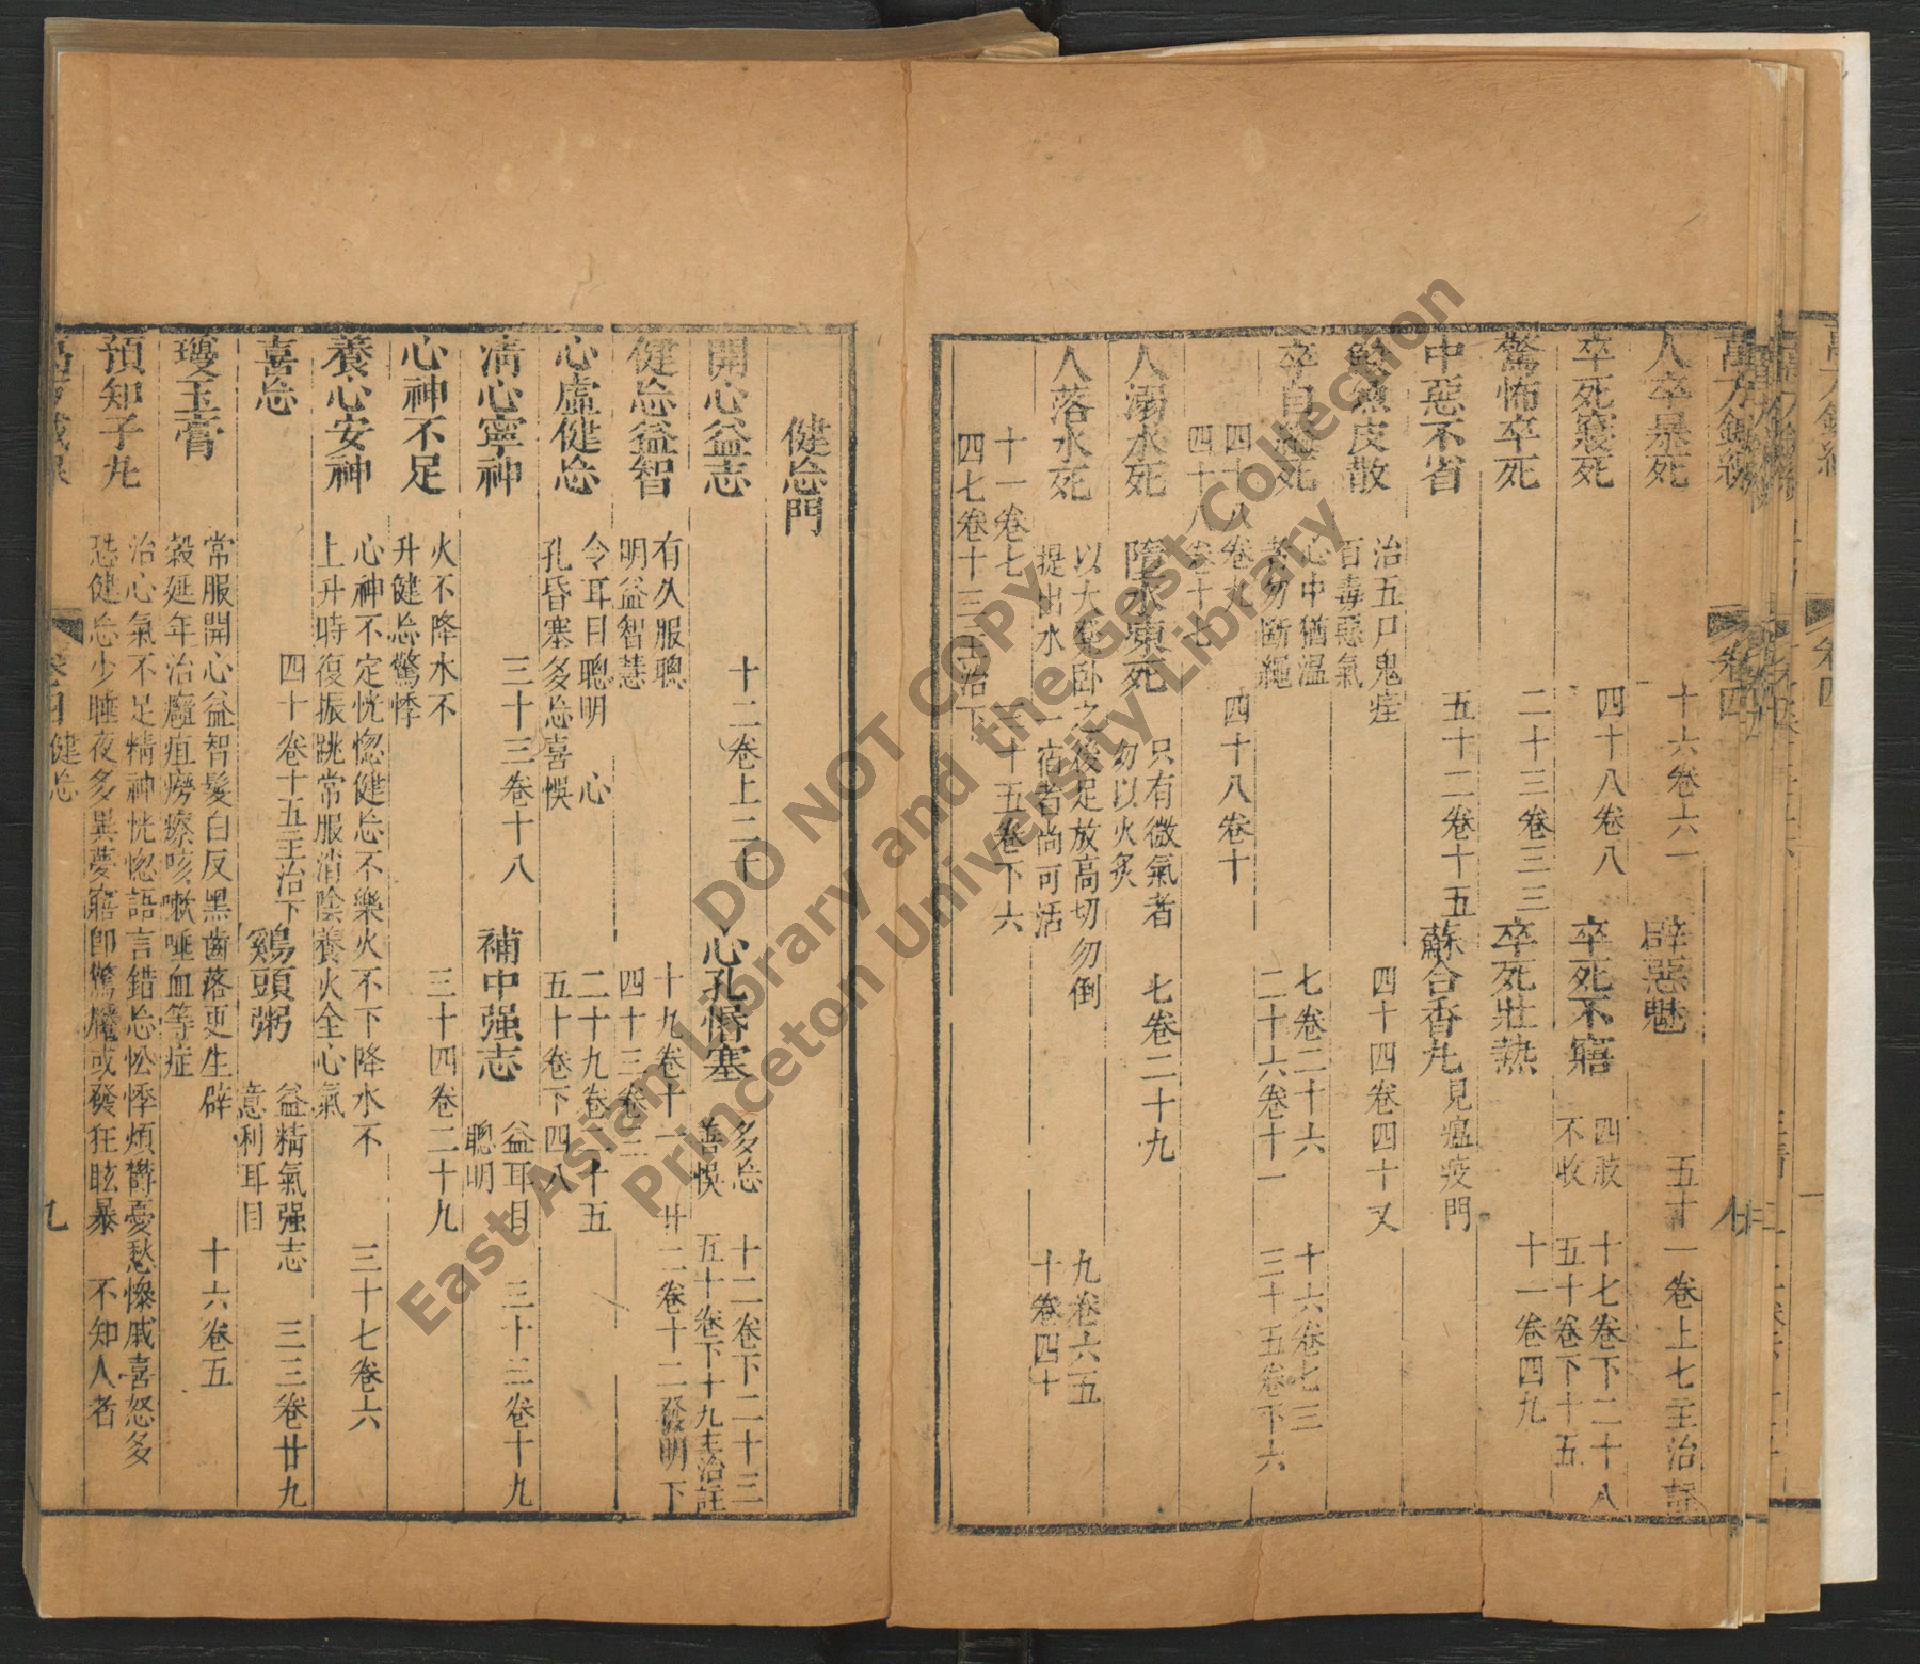 人卒暴死 十六卷六一 辟惡魅 五十一卷上七主治註
卒死寢死 四十八卷八 卒死不寤 四肢不收 十七卷下二十八 五十卷下十五
驚怖卒死 二十三卷三三 卒死壯熱 十一卷四九
中惡不省 五十二卷十五 蘇合香丸 見瘟疫門
魚皮散 治五尸鬼疰百毒惡氣 四十四卷四十又
卒自縊死 心中猶溫者勿斷繩 七卷二十六 二十六卷十一 十六卷七三 三十五卷下六
四十八卷九 四十八卷十七 四十八卷十
人溺水死 墮水凍死 只有微氣者勿以火炙 七卷二十九
人落水死 以大凳臥之後足放高切勿倒提出水一宿者尚可活 九卷六五 十卷四十
十一卷七 三十五卷下六
四七卷十三主治下
健忘門
開心益志 十二卷上二十 心孔惛塞 多忘善悞 十二卷下二十三 五十卷下十九主治註
健忘益智 有久服聰明益智慧 十九卷十一 四十三卷二 廿二卷十二發明下
心虛健忘 令耳目聰明 心孔昏塞多忘喜悞 二十九卷二十五 五十卷下四八
清心寧神 三十三卷十八 補中强志 益耳目聰明 三十三卷十九
心神不足 火不降水不升健忘驚悸 三十四卷二十九
養心安神 心神不定恍惚健忘不樂火不下降水不上升時復振跳常服消陰養火全心氣 三十七卷六
喜忘 四十卷十五主治下 鷄頭粥 益精氣强志意利耳目 三三卷廿九
瓊玉膏 常服開心益智髮白反黑齒落更生辟穀延年治癰疽癆瘵咳嗽唾血等症 十六卷五
預知子丸 治心氣不足精神恍惚語言錯忘忪悸煩鬱憂愁慘戚喜怒多恐健忘少睡夜多異夢寤即驚魘或發狂眩暴不知人者
健忘
九
萬方鍼線
卷四
DO NOT COPY
East Asian Library and the Gest Collection
Princeton University Library